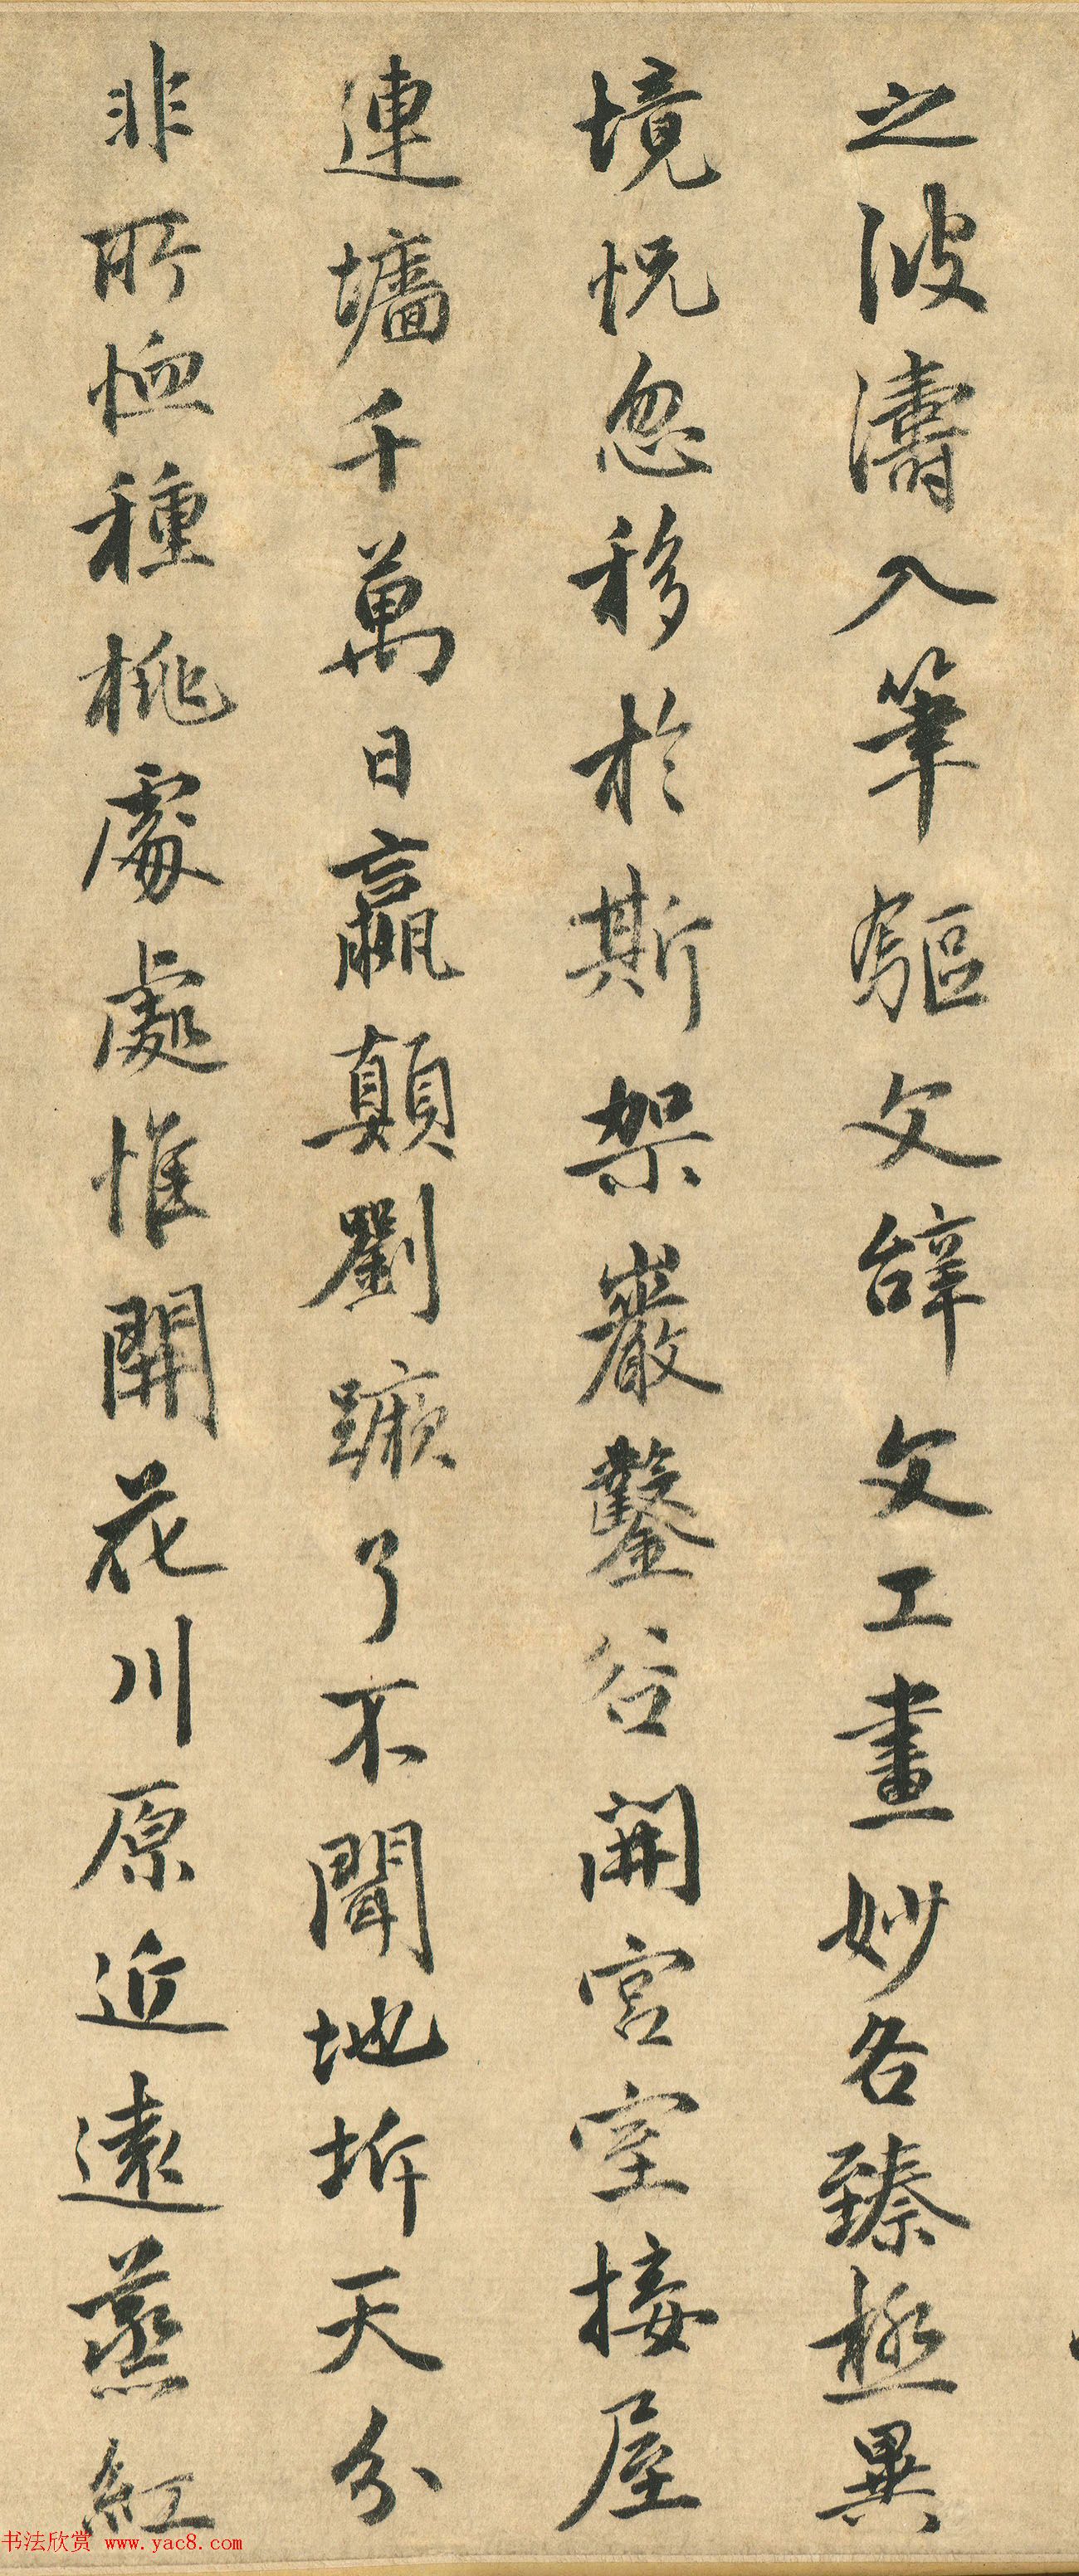 之波濤入筆驅文辝文工畫妙各臻極異
境怳忽移於斯架巖鑿谷開宮室接屋
連墻千萬日嬴顛劉蹶了不聞地坼天分
非所恤種桃處處惟開花川原近遠蒸紅
书法欣赏 www.yac8.com